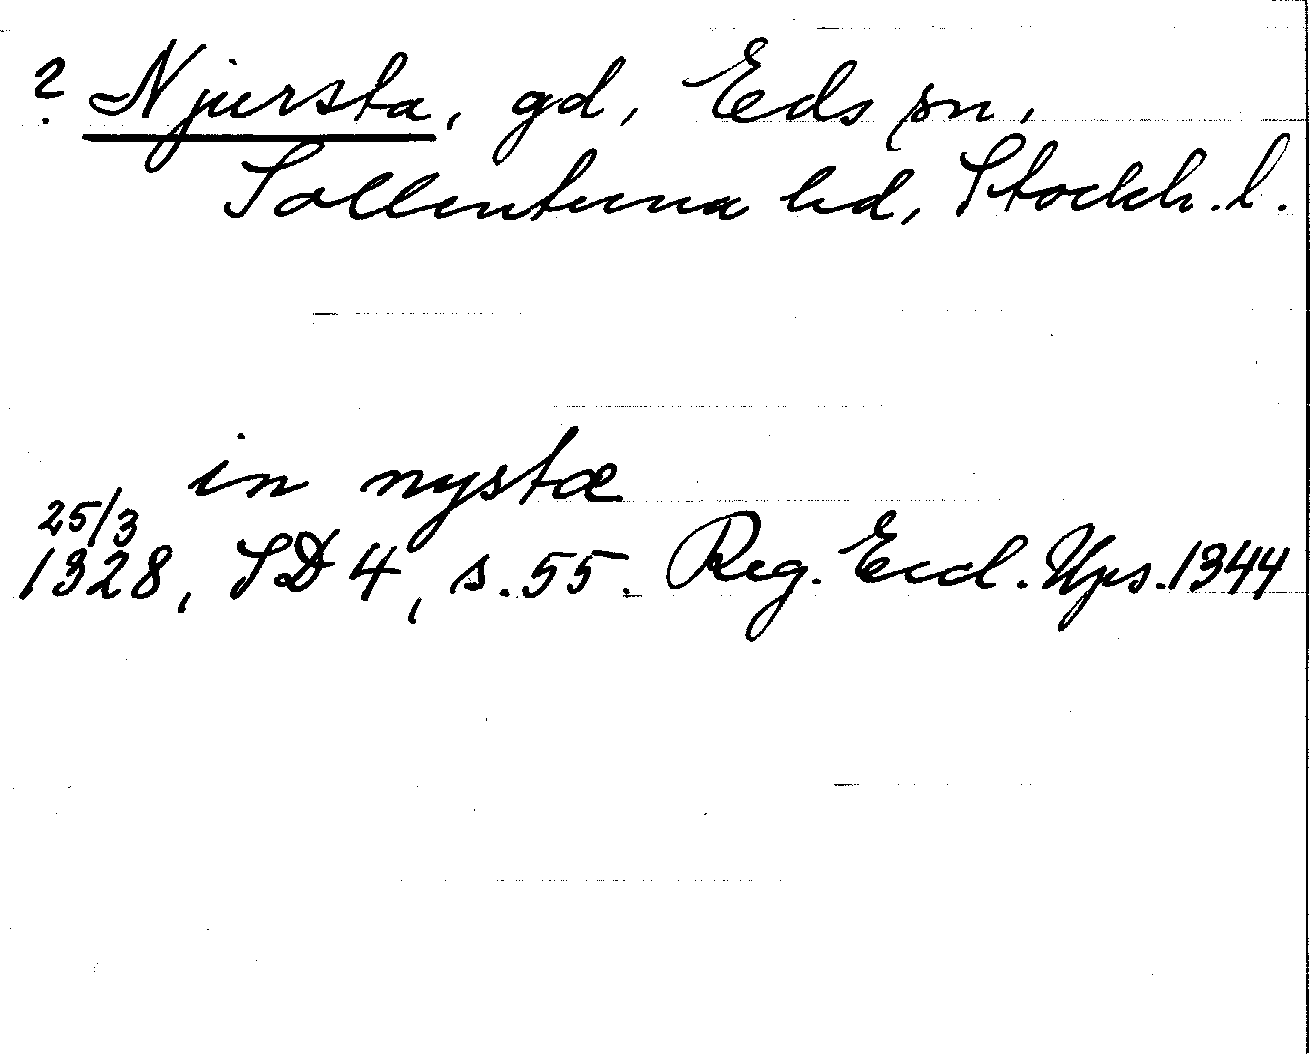 ? Njursta, gd, Eds sn,
Sollentuna hd, Stockh. l.
in nystæ
25/3
1328, SD 4, s. 55. Reg. Eccl. Ups. 1344